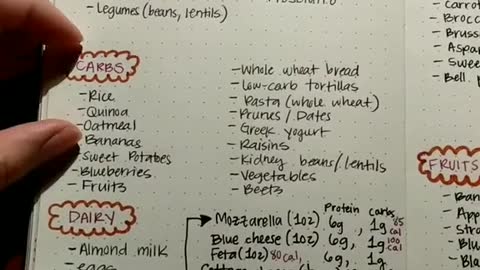 - Legumes (beans, lentils)
CARBS
- Rice
- Quinoa
- Oatmeal
- Bananas
- Sweet Potatoes
- Blueberries
- Fruits
- Whole wheat bread
- Low-carb tortillas
- Pasta (whole wheat)
- Prunes / Dates
- Greek yogurt
- Raisins
- Kidney beans/lentils
- Vegetables
- Beets
DAIRY
- Almond milk
- eggs
Protein carbs
Mozzarella (1oz) 6g, 1g 85 cal
Blue cheese (1oz) 6g, 1g 100 cal
Feta (1oz) 80 cal,
- Carrot
- Brocc
- Bruss
- Aspar
- Swee
- Bell
FRUITS
- Ban
- App
- Stra
- Blu
- Bla